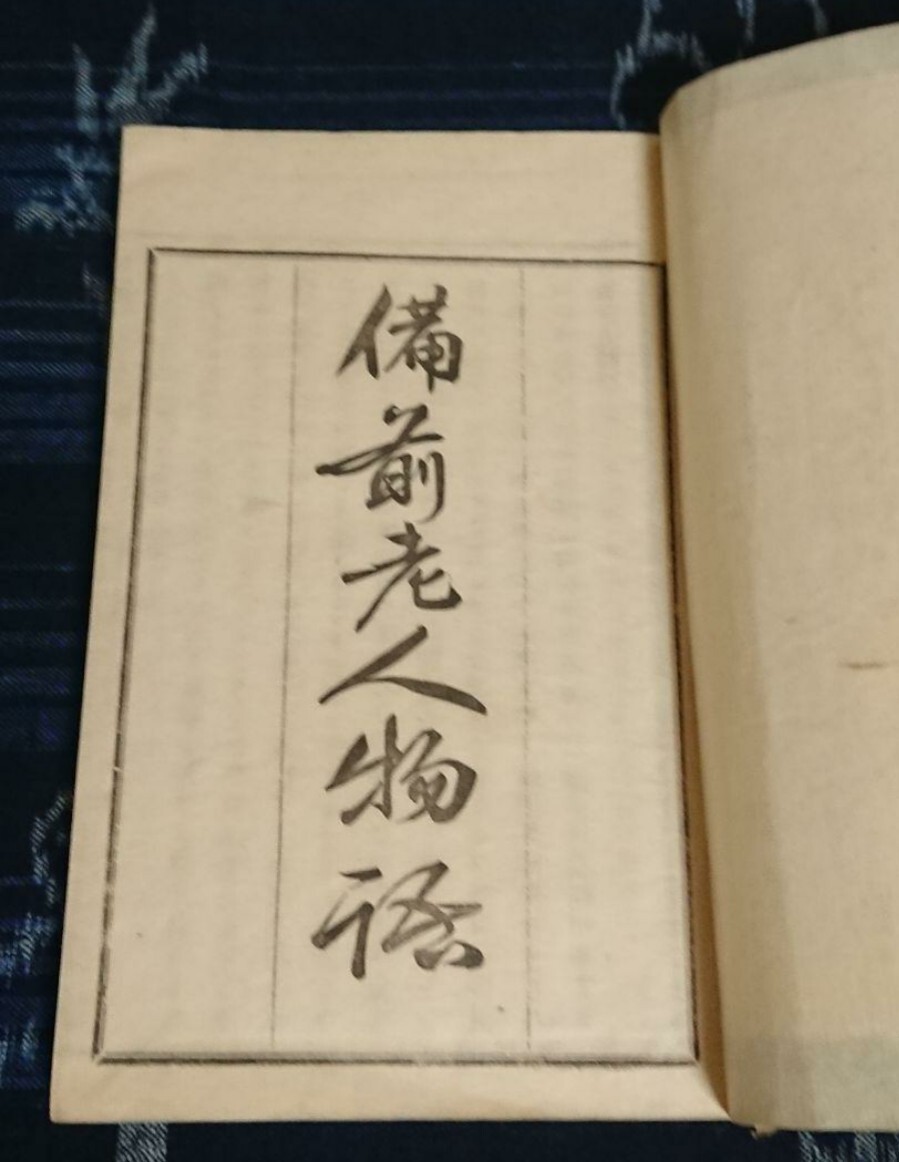 備前老人物語